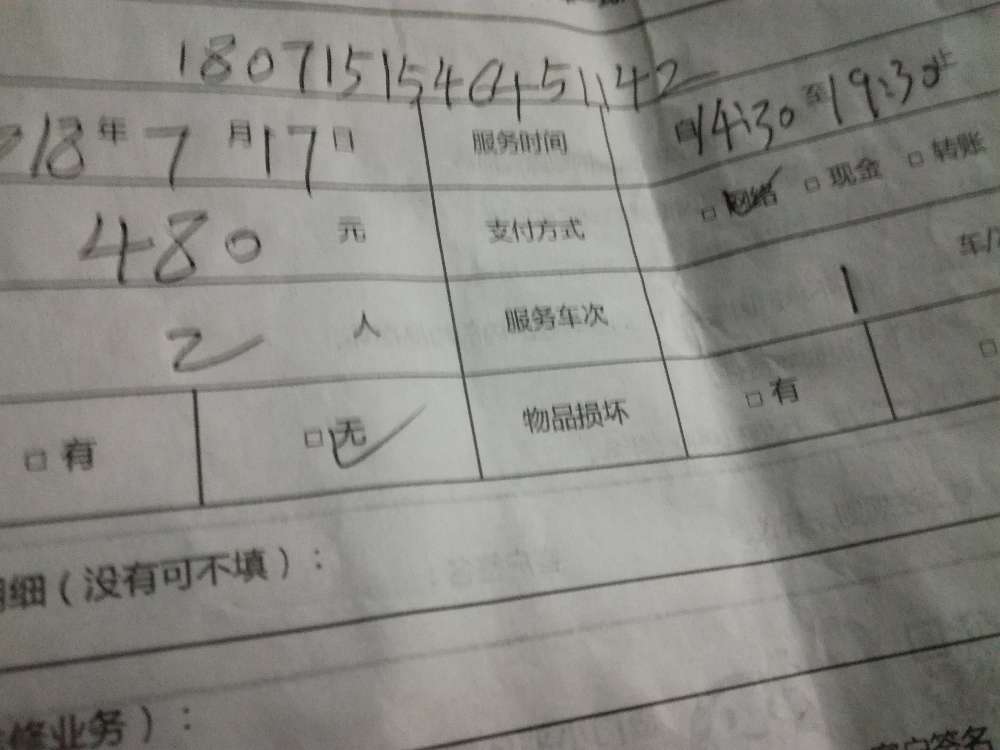 1807151540451142
218年7月17日 服务时间 自14:30至19:30止
480元 支付方式 □网络 □现金 □转账
2人 服务车次 1 车/
□有 □无 物品损坏 □有 □
细(没有可不填):
业务):
签名